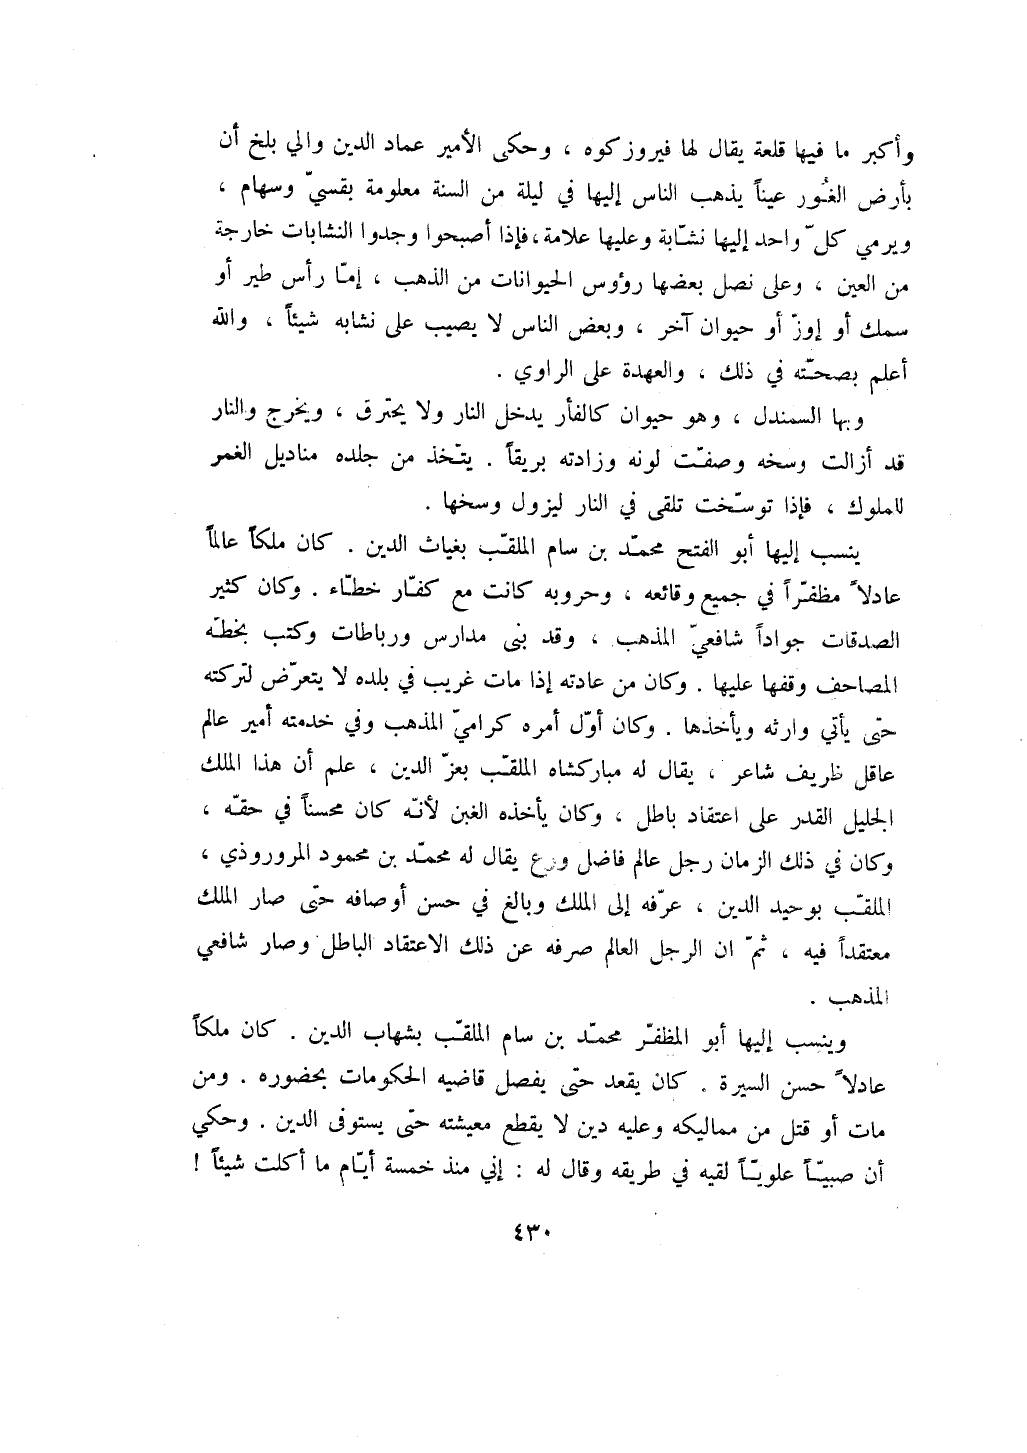 وأكبر ما فيها قلعة يقال لها فيروزكوه ، وحكى الأمير عماد الدين والي بلخ أن
بأرض الغُور عيناً يذهب الناس إليها في ليلة من السنة معلومة بقسيّ وسهام ،
ويرمي كلّ واحد إليها نشّابة وعليها علامة ، فإذا أصبحوا وجدوا النشابات خارجة
من العين ، وعلى نصل بعضها رؤوس الحيوانات من الذهب ، إمّا رأس طير أو
سمك أو إوزّ أو حيوان آخر ، وبعض الناس لا يصيب على نشابه شيئاً ، والله
أعلم بصحّته في ذلك ، والعهدة على الراوي .
وبها السمندل ، وهو حيوان كالفأر يدخل النار ولا يحترق ، ويخرج والنار
قد أزالت وسخه وصفّت لونه وزادته بريقاً . يتّخذ من جلده مناديل الغمر
للملوك ، فإذا توسّخت تلقى في النار ليزول وسخها .
ينسب إليها أبو الفتح محمّد بن سام الملقّب بغياث الدين . كان ملكاً عالماً
عادلاً مظفّراً في جميع وقائعه ، وحروبه كانت مع كفّار خطّاء . وكان كثير
الصدقات جواداً شافعيّ المذهب ، وقد بنى مدارس ورباطات وكتب بخطّه
المصاحف وقفها عليها . وكان من عادته إذا مات غريب في بلده لا يتعرّض لتركته
حتّى يأتي وارثه ويأخذها . وكان أوّل أمره كراميّ المذهب وفي خدمته أمير عالم
عاقل ظريف شاعر ، يقال له مباركشاه الملقّب بعزّ الدين ، علم أن هذا الملك
الجليل القدر على اعتقاد باطل ، وكان يأخذه الغبن لأنّه كان محسناً في حقّه ،
وكان في ذلك الزمان رجل عالم فاضل ورع يقال له محمّد بن محمود المروروذي ،
الملقّب بوحيد الدين ، عرّفه إلى الملك وبالغ في حسن أوصافه حتّى صار الملك
معتقداً فيه ، ثمّ ان الرجل العالم صرفه عن ذلك الاعتقاد الباطل وصار شافعي
المذهب .
وينسب إليها أبو المظفّر محمّد بن سام الملقّب بشهاب الدين . كان ملكاً
عادلاً حسن السيرة . كان يقعد حتّى يفصل قاضيه الحكومات بحضوره . ومن
مات أو قتل من مماليكه وعليه دين لا يقطع معيشته حتّى يستوفى الدين . وحكي
أن صبيّاً علويّاً لقيه في طريقه وقال له : إني منذ خمسة أيّام ما أكلت شيئاً !
٤٣٠